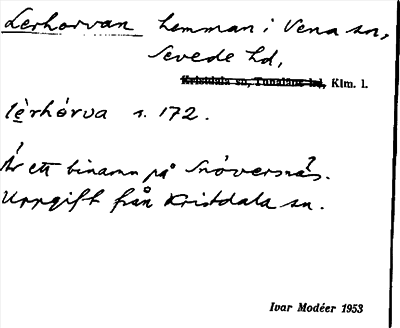 Lerhorvan hemman i Vena sn,
Sevede hd,
Kristdala sn, Tunaläns hd, Klm. l.
lèrhórva s. 172.
Är ett binamn på Snóversnäs?
Uppgift från Kristdala sn.
Ivar Modéer 1953